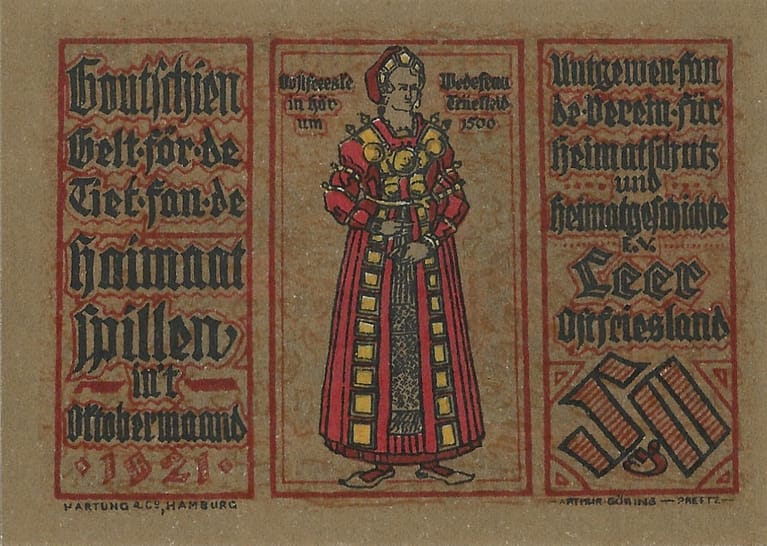 Goutschien
Gelt·för·de
Tiet·fan·de
Haimaat
spillen
in't
Oktobermaand
1921
in hör
um
1500
Uutgewen·fan
de·Verein·für
Heimatschutz
und
Heimatgeschichte
E.V.
Leer
Ostfriesland
50
HARTUNG & Co, HAMBURG
ARTHUR GÖRING — PREETZ